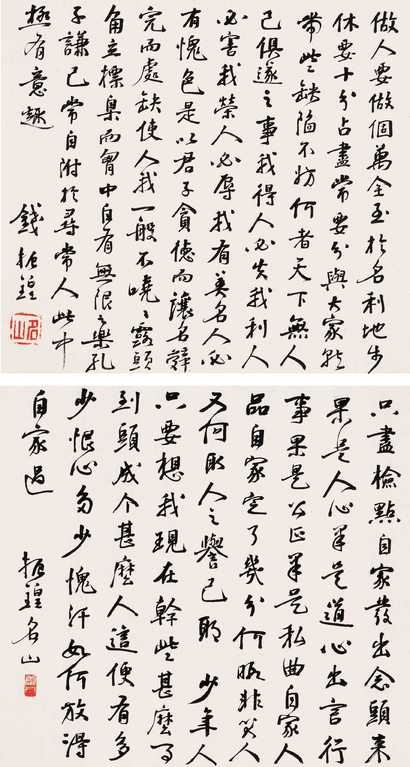 做人要做個萬全至於名利地步
休要十分占盡常要分與大家就
帶些缺陷不妨何者天下無人
己俱遂之事我得人必失我利人
必害我榮人必辱我有美名人必
有愧色是以君子貪德而讓名辭
完而處缺使人我一般不嶢嶢露頭
角立標臬而胸中自有無限之樂孔
子謙己常自附於尋常人此中
極有意趣
錢振鍠
名山
只盡檢點自家發出念頭來
果是人心果是道心出言行
事果是公正果是私曲自家人
品自家定了幾分何暇非笑人
又何敢人之譽己耶 少年人
只要想我現在幹些甚麼事
到頭成个甚麼人這便有多
少恨心多少愧汗如何放得
自家過
振鍠名山